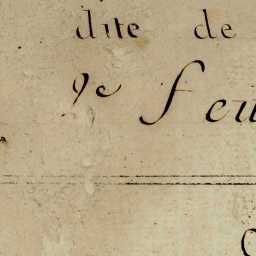 dite de
9e feu